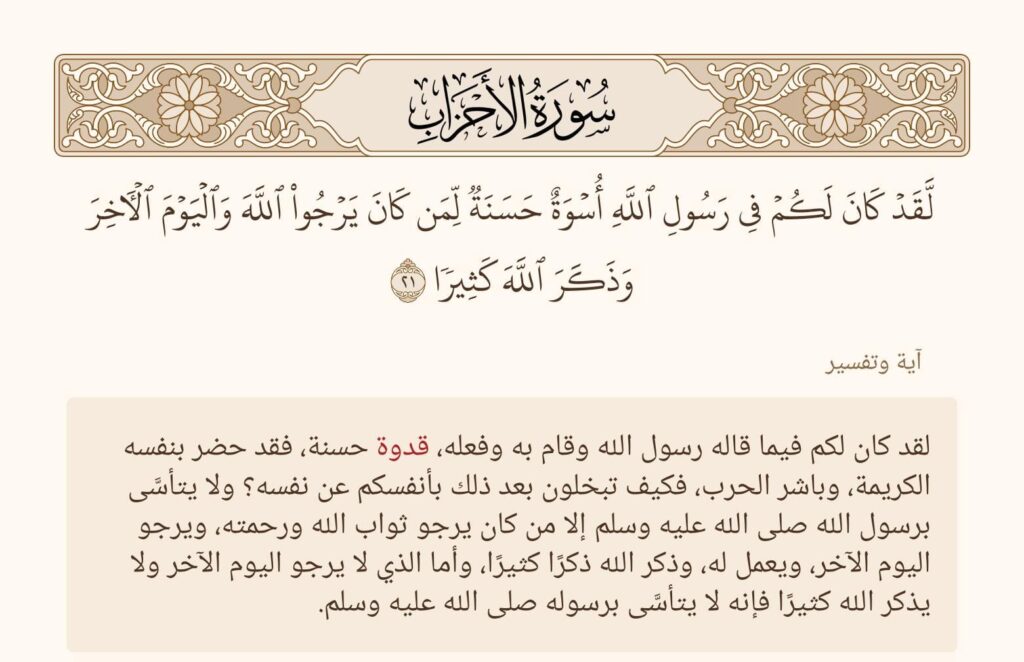 سُورَةُ الأَحْزَابِ
لَّقَدۡ كَانَ لَكُمۡ فِي رَسُولِ ٱللَّهِ أُسۡوَةٌ حَسَنَةٞ لِّمَن كَانَ يَرۡجُواْ ٱللَّهَ وَٱلۡيَوۡمَ ٱلۡأٓخِرَ
وَذَكَرَ ٱللَّهَ كَثِيرٗا ٢١
آية وتفسير
لقد كان لكم فيما قاله رسول الله وقام به وفعله، قدوة حسنة، فقد حضر بنفسه
الكريمة، وباشر الحرب، فكيف تبخلون بعد ذلك بأنفسكم عن نفسه؟ ولا يتأسَّى
برسول الله صلى الله عليه وسلم إلا من كان يرجو ثواب الله ورحمته، ويرجو
اليوم الآخر، ويعمل له، وذكر الله ذكرًا كثيرًا، وأما الذي لا يرجو اليوم الآخر ولا
يذكر الله كثيرًا فإنه لا يتأسَّى برسوله صلى الله عليه وسلم.